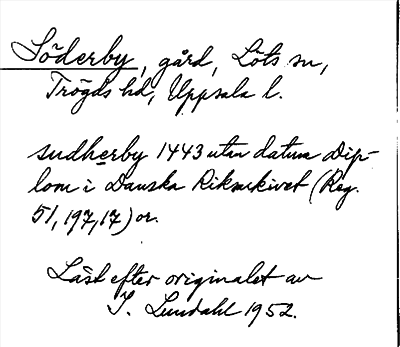 Söderby, gård, Löts sn,
Trögds hd, Uppsala l.
sudherby 1443 utan datum Dip-
lom i Danska Riksarkivet (Reg.
51,197,17) or.
Läst efter originalet av
I. Lundahl 1952.